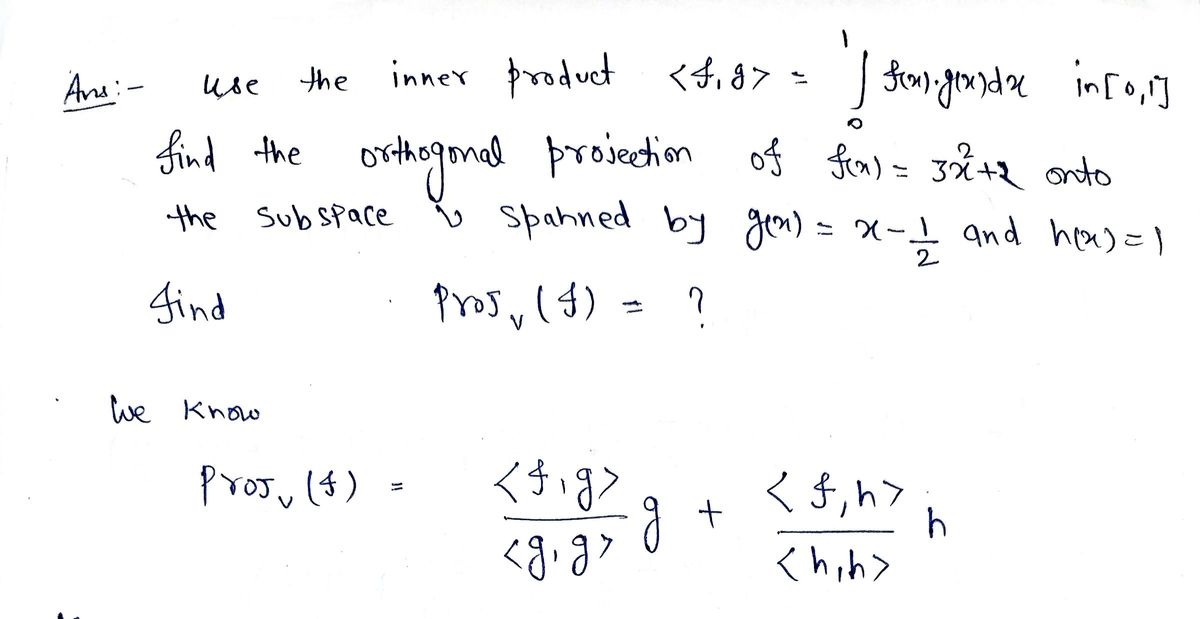 Ans:- use the inner product <f,g> = ∫₀¹ f(x)·g(x)dx in [0,1]
find the orthogonal projection of f(x) = 3x²+2 onto
the subspace V spanned by g(x) = x - 1/2 and h(x) = 1
find Proj_v (f) = ?
We Know
Proj_v (f) = <f,g>/<g,g> g + <f,h>/<h,h> h